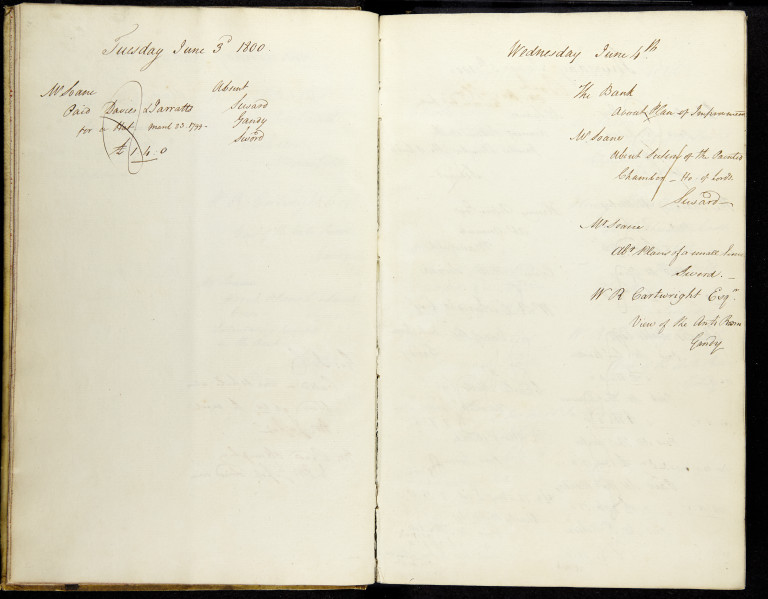 Tuesday June 3d 1800.
Mr Soane
Paid Davies & Jarratts
for a Hat March 23. 1799-
£ 1 4 0
Absent
Seward
Gandy
Sword
Wednesday June 4th
The Bank
About Plan of Improvement
Mr Soane
About Section of the Painted
Chamber - Ho. of Lords.
Seward
Mr Soane
Abt Plans of a small
Sword. -
W R Cartwright Esqr.
View of the Anti Room
Gandy